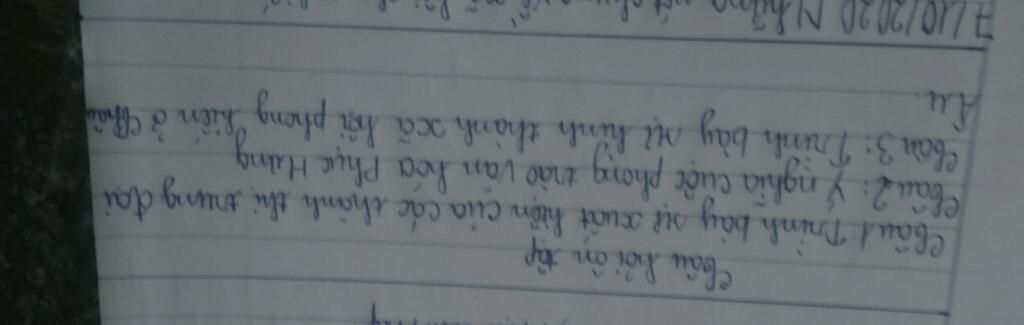 Câu hỏi ôn tập
Câu 1 Trình bày sự xuất hiện của các thành thị trung đại
Câu 2: Ý nghĩa cuộc phong trào văn hóa Phục Hưng
Câu 3: Trình bày sự hình thành xã hội phong kiến ở Châu
Âu.
7/10/2020 Những nét chung về xã hội